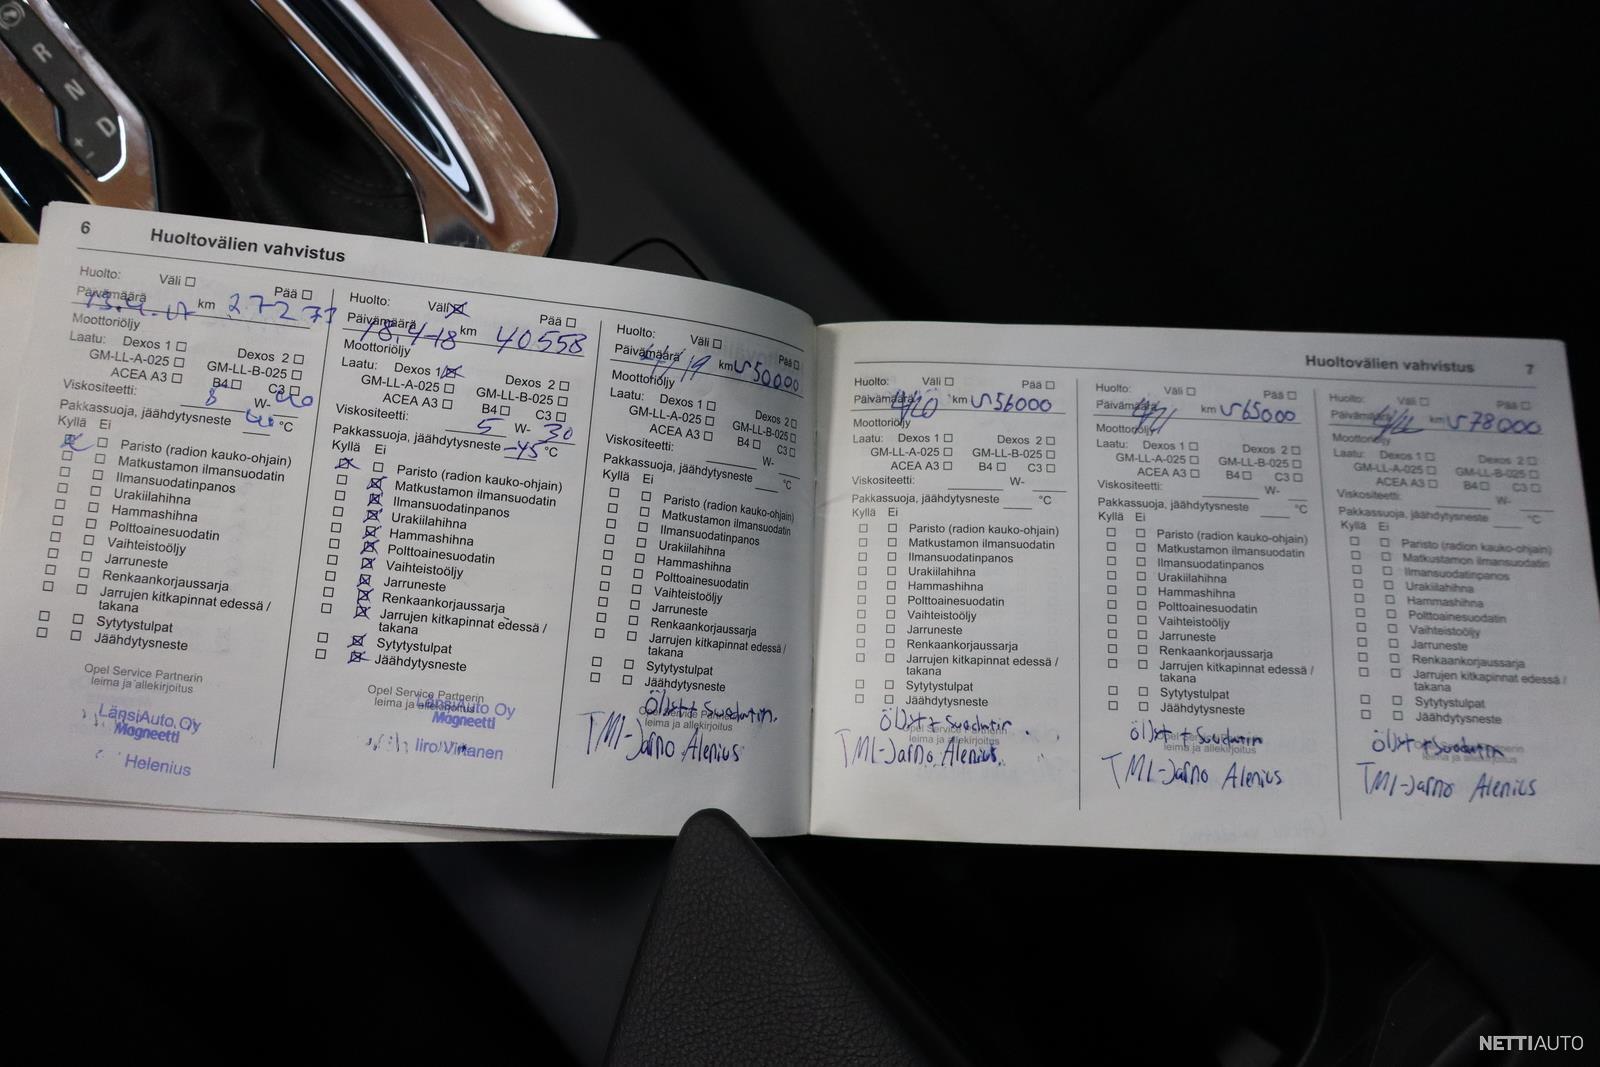 R
N
D
+
-
6
Huoltovälien vahvistus
Huolto: Väli Pää
Päivämäärä km 27271
Moottoriöljy
Laatu: Dexos 1 Dexos 2
GM-LL-A-025 GM-LL-B-025
ACEA A3 B4 C3
Viskositeetti: W-
Pakkassuoja, jäähdytysneste °C
Kyllä Ei
Paristo (radion kauko-ohjain)
Matkustamon ilmansuodatin
Ilmansuodatinpanos
Urakiilahihna
Hammashihna
Polttoainesuodatin
Vaihteistoöljy
Jarruneste
Renkaankorjaussarja
Jarrujen kitkapinnat edessä /
takana
Sytytystulpat
Jäähdytysneste
Opel Service Partnerin
leima ja allekirjoitus
LänsiAuto Oy
Magneetti
Helenius
Huolto: Väli Pää
Päivämäärä 18.4-18 km 40558
Moottoriöljy
Laatu: Dexos 1 Dexos 2
GM-LL-A-025 GM-LL-B-025
ACEA A3 B4 C3
Viskositeetti: 5 W- 30
Pakkassuoja, jäähdytysneste -45 °C
Kyllä Ei
Paristo (radion kauko-ohjain)
Matkustamon ilmansuodatin
Ilmansuodatinpanos
Urakiilahihna
Hammashihna
Polttoainesuodatin
Vaihteistoöljy
Jarruneste
Renkaankorjaussarja
Jarrujen kitkapinnat edessä /
takana
Sytytystulpat
Jäähdytysneste
Opel Service Partnerin
leima ja allekirjoitus
LänsiAuto Oy
Magneetti
Iiro Virtanen
Huolto: Väli Pää
Päivämäärä 4/19 km ~50000
Moottoriöljy
Laatu: Dexos 1 Dexos 2
GM-LL-A-025 GM-LL-B-025
ACEA A3 B4 C3
Viskositeetti: W-
Pakkassuoja, jäähdytysneste °C
Kyllä Ei
Paristo (radion kauko-ohjain)
Matkustamon ilmansuodatin
Ilmansuodatinpanos
Urakiilahihna
Hammashihna
Polttoainesuodatin
Vaihteistoöljy
Jarruneste
Renkaankorjaussarja
Jarrujen kitkapinnat edessä /
takana
Sytytystulpat
Jäähdytysneste
Opel Service Partnerin
leima ja allekirjoitus
TMI-Jarno Alenius
Huoltovälien vahvistus
7
Huolto: Väli Pää
Päivämäärä 4/20 km ~56000
Moottoriöljy
Laatu: Dexos 1 Dexos 2
GM-LL-A-025 GM-LL-B-025
ACEA A3 B4 C3
Viskositeetti: W-
Pakkassuoja, jäähdytysneste °C
Kyllä Ei
Paristo (radion kauko-ohjain)
Matkustamon ilmansuodatin
Ilmansuodatinpanos
Urakiilahihna
Hammashihna
Polttoainesuodatin
Vaihteistoöljy
Jarruneste
Renkaankorjaussarja
Jarrujen kitkapinnat edessä /
takana
Sytytystulpat
Jäähdytysneste
leima ja allekirjoitus
TMI-Jarno Alenius
Huolto: Väli Pää
Päivämäärä 4/21 km ~65000
Moottoriöljy
Laatu: Dexos 1 Dexos 2
GM-LL-A-025 GM-LL-B-025
ACEA A3 B4 C3
Viskositeetti: W-
Pakkassuoja, jäähdytysneste °C
Kyllä Ei
Paristo (radion kauko-ohjain)
Matkustamon ilmansuodatin
Ilmansuodatinpanos
Urakiilahihna
Hammashihna
Polttoainesuodatin
Vaihteistoöljy
Jarruneste
Renkaankorjaussarja
Jarrujen kitkapinnat edessä /
takana
Sytytystulpat
Jäähdytysneste
leima ja allekirjoitus
TMI-Jarno Alenius
Huolto: Väli Pää
Päivämäärä km ~78000
Moottoriöljy
Laatu: Dexos 1 Dexos 2
GM-LL-A-025 GM-LL-B-025
ACEA A3 B4 C3
Viskositeetti: W-
Pakkassuoja, jäähdytysneste °C
Kyllä Ei
Paristo (radion kauko-ohjain)
Matkustamon ilmansuodatin
Ilmansuodatinpanos
Urakiilahihna
Hammashihna
Polttoainesuodatin
Vaihteistoöljy
Jarruneste
Renkaankorjaussarja
Jarrujen kitkapinnat edessä /
takana
Sytytystulpat
Jäähdytysneste
leima ja allekirjoitus
TMI-Jarno Alenius
NETTIAUTO